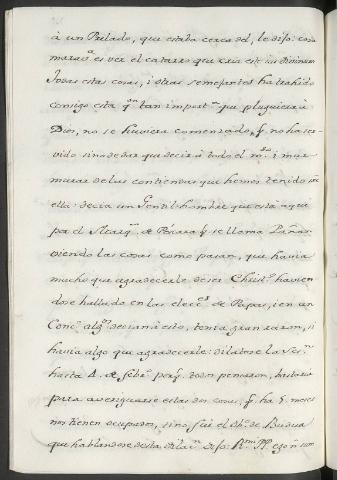 à un Prelado, que estaba cerca del, le dijo: cosa
marav.ª es ver el catarro que cria este
todas estas cosas, i otras semejantes ha trahido
consigo esta q.n tan import.e q.e pluguiera à
Dios, no se huviera comenzado, q. no ha ser
vido sino de dar que decir à todo el m.do i mur
murar de las contiendas que hemos tenido sre
ella: decia un Gentil hombre que està aqui
por el Marq.s de Pescara q. se llama
viendo las cosas como pasan, que havia
mucho que agradecerle de ser Christ.o havien
dose hallado en las elecc.s de Papas, i en un
Conc.o algs. decian à esto, tenia gran razon, si
havia algo que agradecerle: dilatose la Ses.n
hasta 4. de Febr.o porq. todos pensaron, bastaria
para averiguarse estas dos cosas, q. ha 5. meses
nos tienen ocupados, sino fuè el Ob.o de Budua
que hablandose de esta dilac.n dijo: R.mi PP. ego